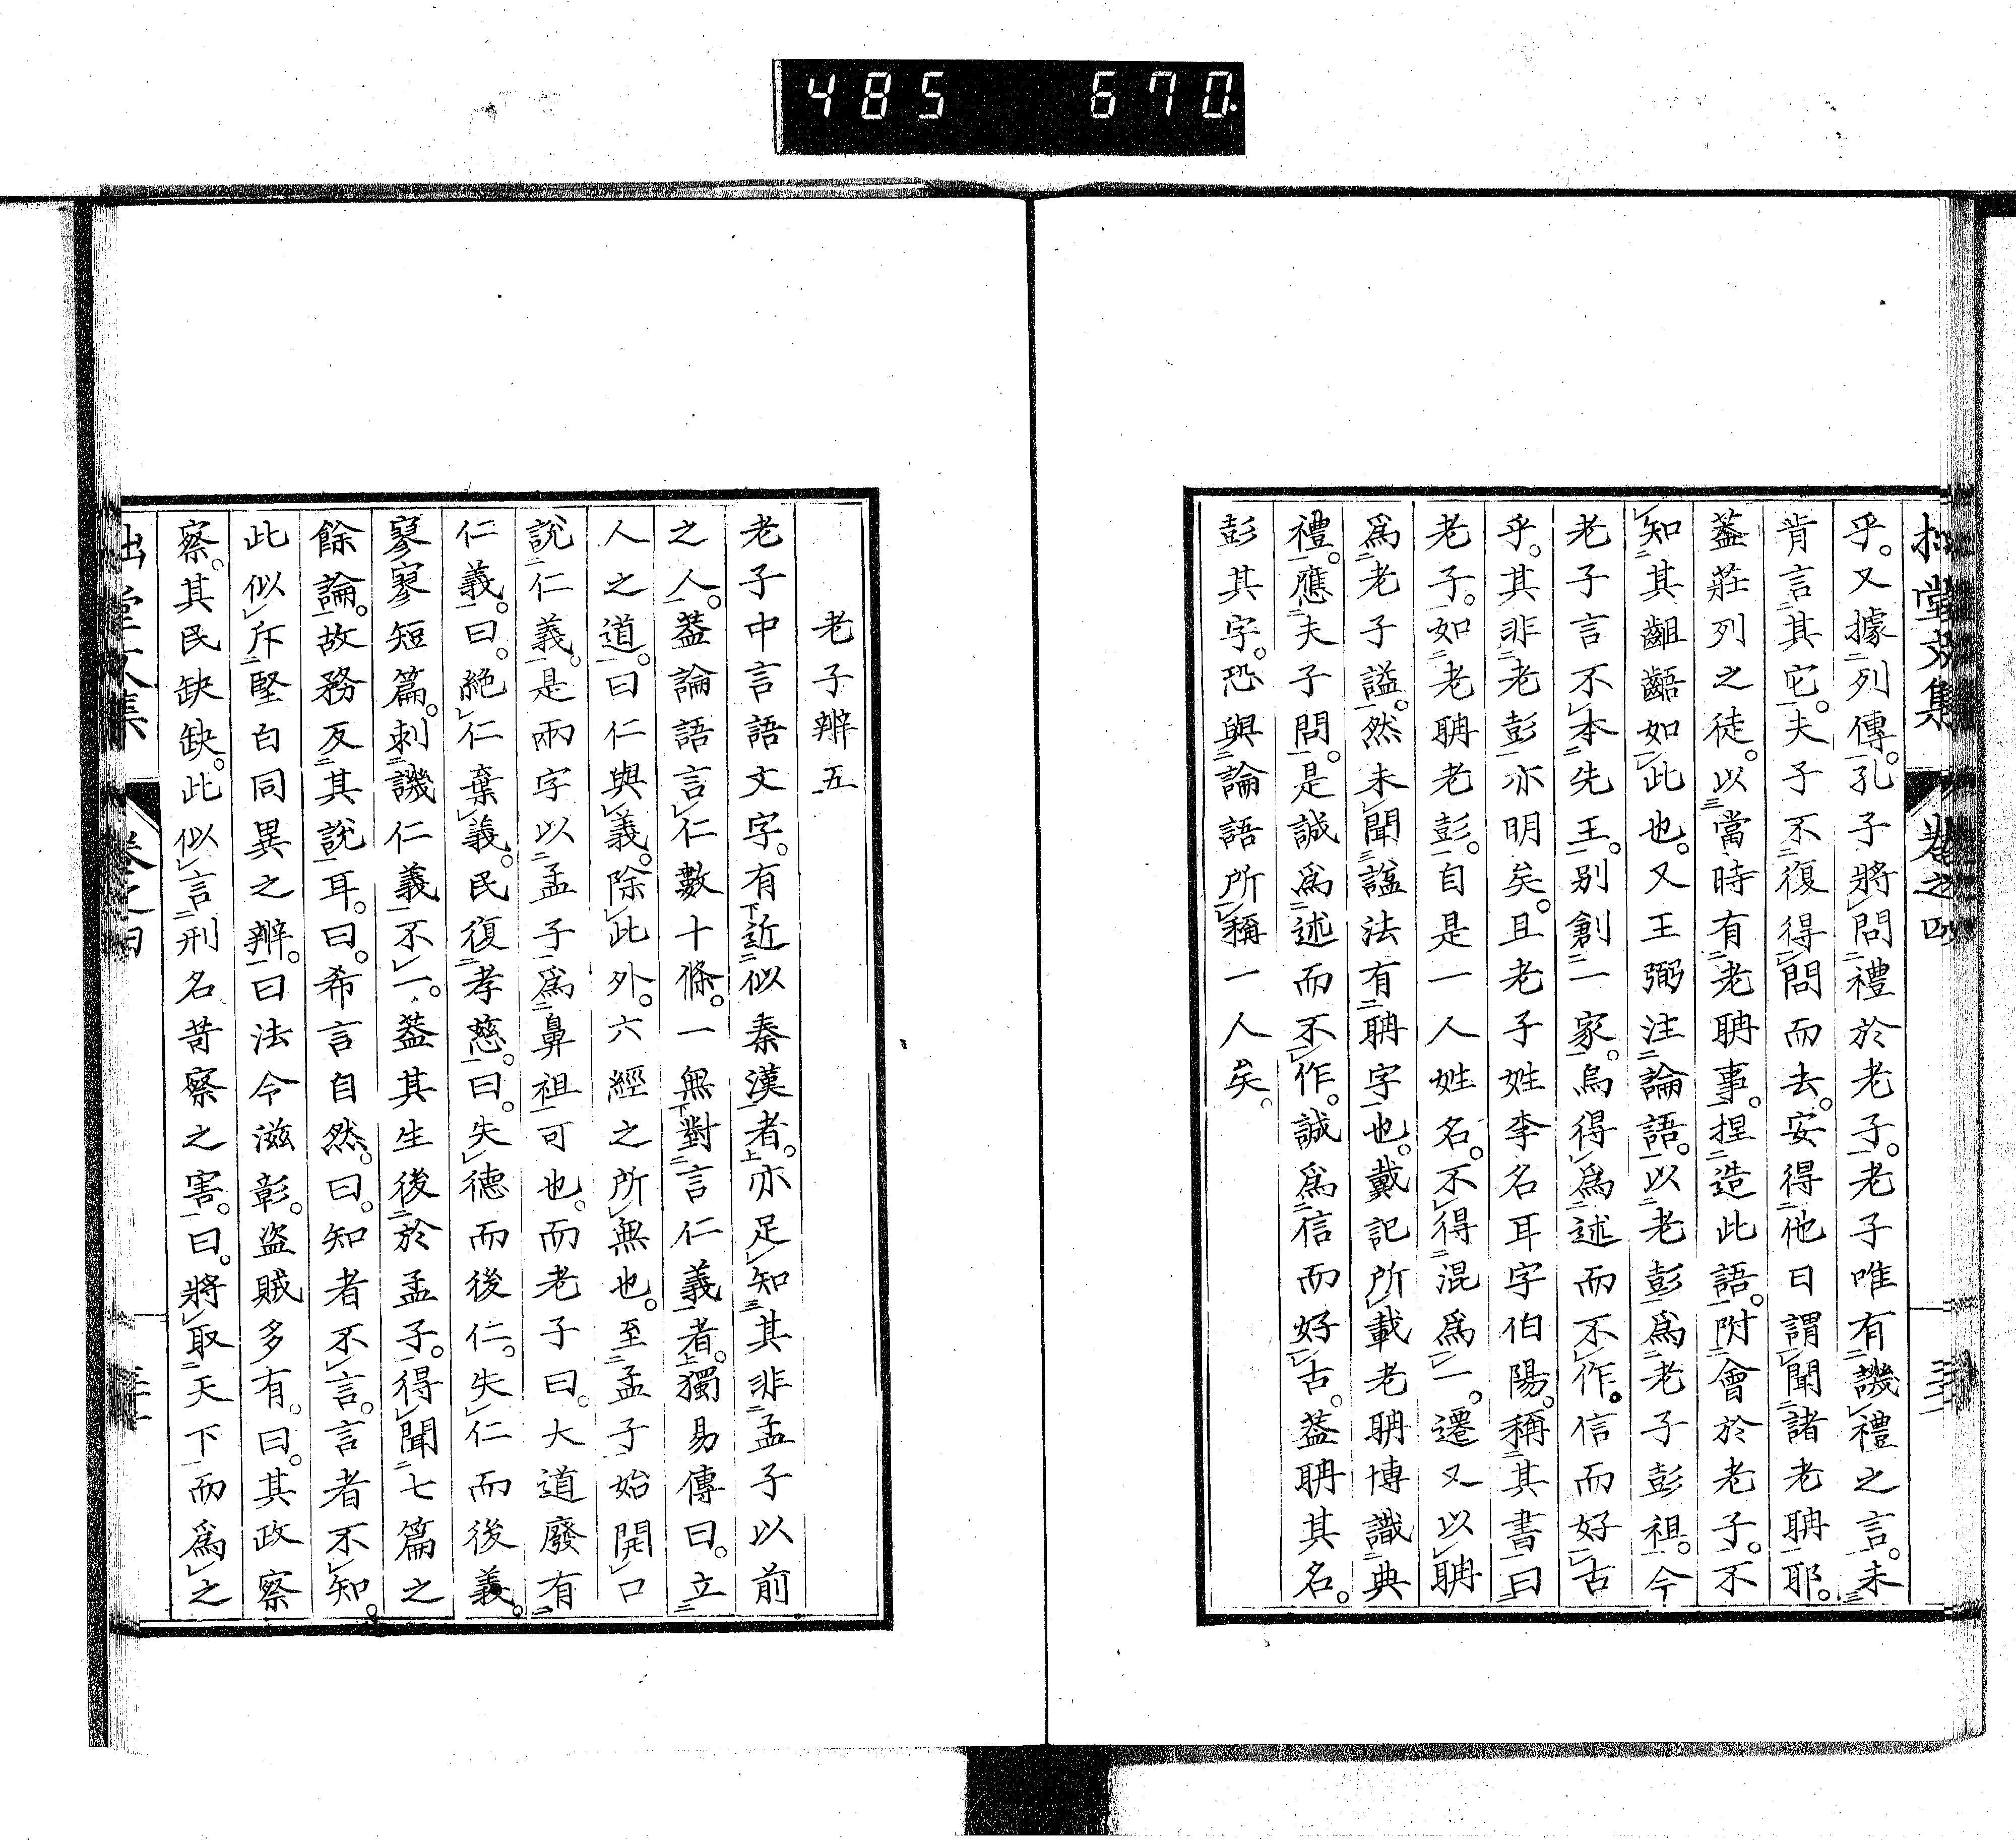 485 670
堂文集 卷之四
乎。又據列傳。孔子將問禮於老子。老子唯有譏禮之言。未
肯言其它。夫子不復得問而去。安得他日謂聞諸老聃耶。
蓋莊列之徒。以當時有老聃事。捏造此語。附會於老子。不
知其齟齬如此也。又王弼注論語。以老彭爲老子彭祖。今
老子言不本先王。別創一家。烏得爲述而不作。信而好古
乎。其非老彭亦明矣。且老子姓李名耳字伯陽。稱其書曰
老子。如老聃老彭。自是一人姓名。不得混爲一。遷又以聃
爲老子謚。然未聞諡法有聃字也。戴記所載老聃博識典
禮。應夫子問。是誠爲述而不作。誠爲信而好古。蓋聃其名。
彭其字。恐與論語所稱一人矣。
老子辨五
老子中言語文字。有近似秦漢者。亦足知其非孟子以前
之人。蓋論語言仁數十條。一無對言仁義者。獨易傳曰。立
人之道。曰仁與義。除此外。六經之所無也。至孟子始開口
說仁義。是兩字以孟子爲鼻祖可也。而老子曰。大道廢有
仁義。曰。絕仁棄義。民復孝慈。曰。失德而後仁。失仁而後義。
寥寥短篇。刺譏仁義不一。蓋其生後於孟子。得聞七篇之
餘論。故務反其說耳。曰。希言自然。曰。知者不言。言者不知。
此似斥堅白同異之辨。曰法令滋彰。盜賊多有。曰。其政察
察。其民缺缺。此似言刑名苛察之害。曰。將取天下而爲之